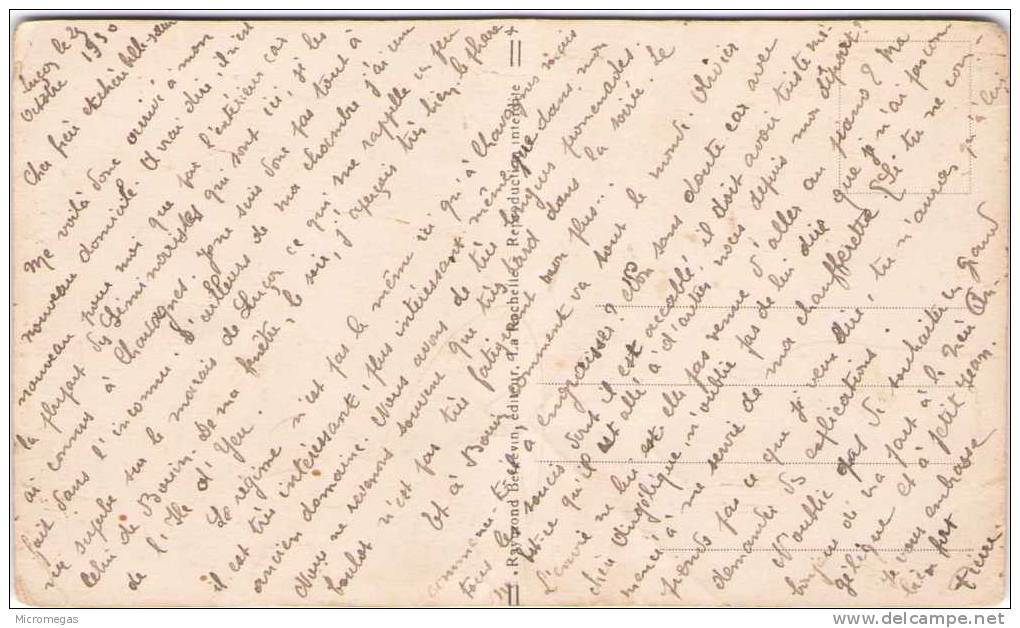 Luçon le 29
Octobre 1930
Cher frère et chère belle-sœur
Me voilà donc arrivé à mon
nouveau domicile. A vrai dire, il n'est
nouveau pour moi que par l'extérieur car
la plupart des séminaristes qui sont ici, je les
ai connus à Chavagnes, je ne suis donc pas tout à
fait dans l'inconnu. D'ailleurs de ma chambre j'ai une
vue superbe sur le marais de Luçon ce qui me rappelle un peu
celui de Bouin. De ma fenêtre, le soir, j'aperçois très bien le phare
de l'Ile d'Yeu.
Le régime n'est pas le même ici qu'à Chavagnes mais
il est très intéressant, plus intéressant même que dans mon
ancien domaine. Nous avons de très longues promenades.
Nous ne revenons souvent que très tard dans la soirée. Le
boulot n'est pas très fatigant non plus...
Et à Bouin comment va tout le monde. Olivier
commence-t-il à engraisser? Non sans doute car avec
tous les soucis dont il est accablé il doit avoir triste mi-
ne. Est-ce qu'il est allé à d'autres noces depuis mon départ?
L'envie ne lui est-elle pas venue d'aller au
chère Angélique n'oublie pas de lui dire que je n'ai pas com
mencé à me servir de ma chaufferette. (Si tu ne com-
prends pas ce que je veux dire, tu n'auras qu'à lui
demander des explications.
N'oublie pas de souhaiter un grand
bonjour de ma part à la chère An-
gélique et à petit Jean.
Je vous embrasse
bien fort
Pierre
Raymond Bergevin, éditeur, La Rochelle. Reproduction interdite
Micromegas
delcampe.net